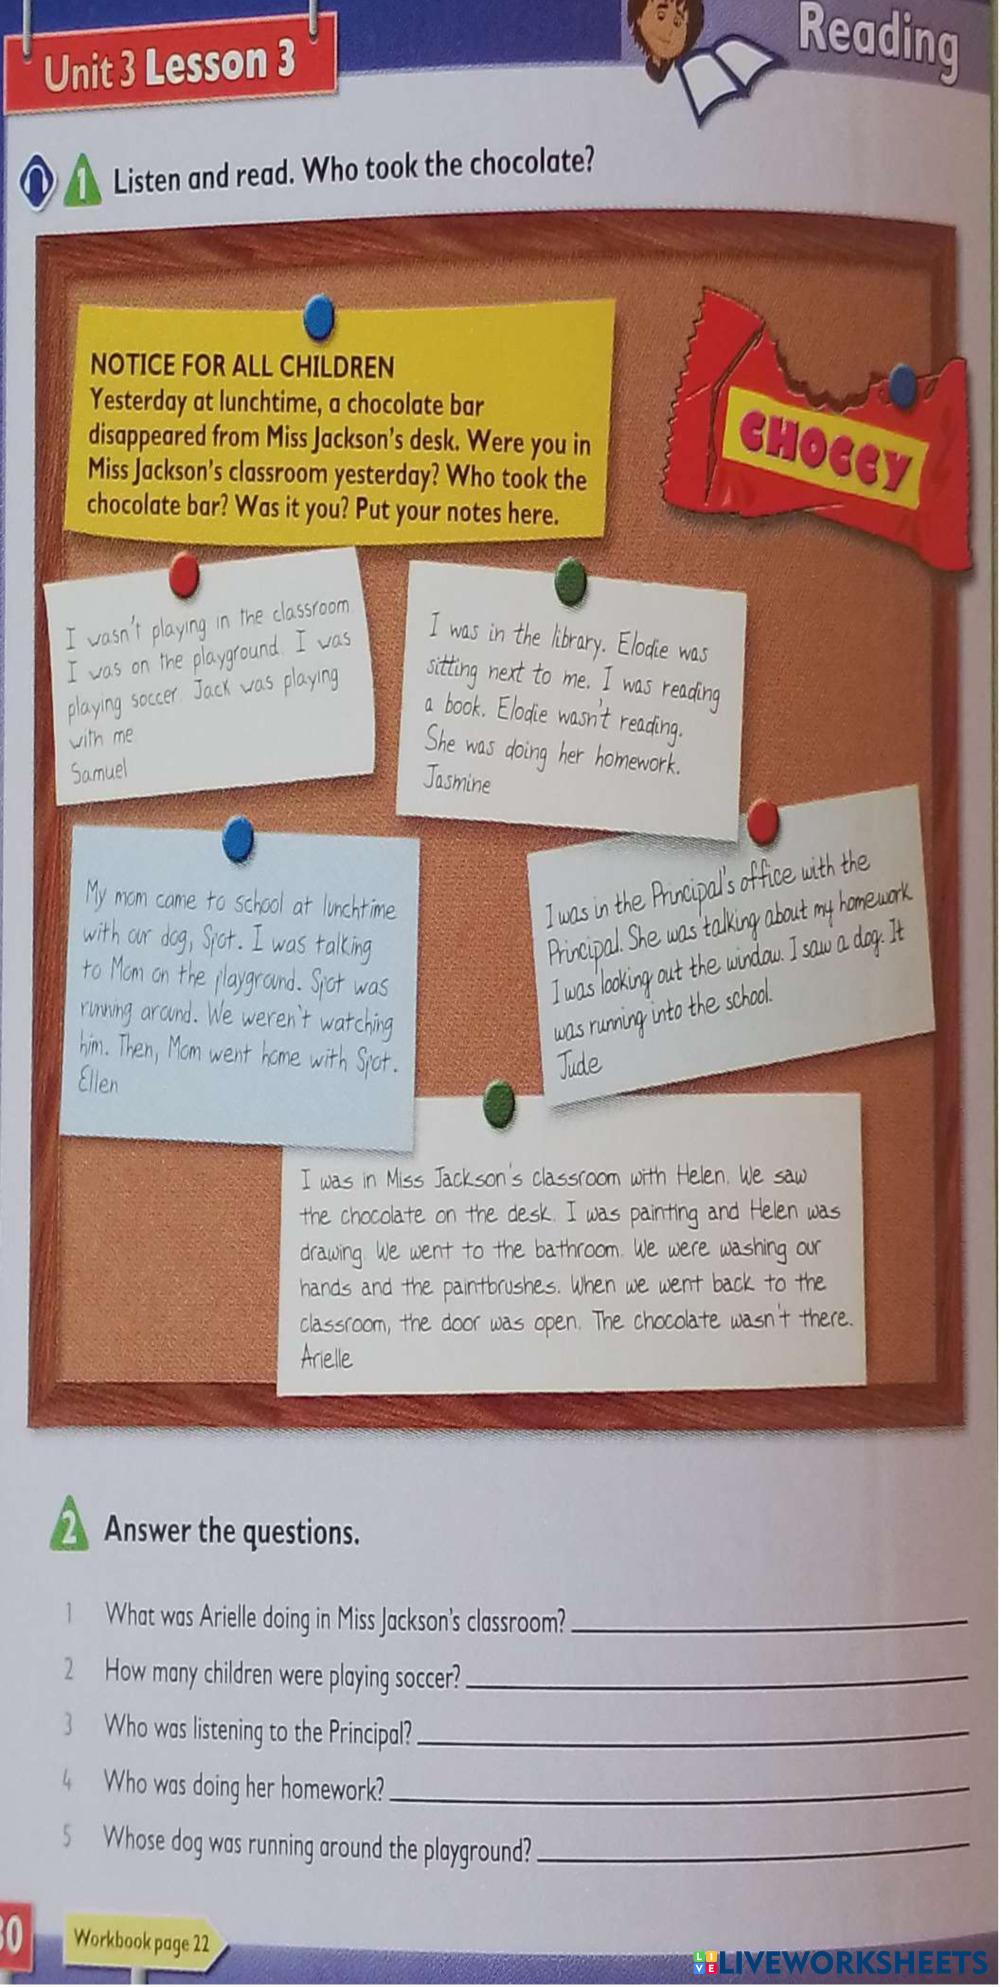 Reading
Unit 3 Lesson 3
1 Listen and read. Who took the chocolate?
NOTICE FOR ALL CHILDREN
Yesterday at lunchtime, a chocolate bar
disappeared from Miss Jackson's desk. Were you in
Miss Jackson's classroom yesterday? Who took the
chocolate bar? Was it you? Put your notes here.
CHOCCY
I wasn't playing in the classroom.
I was on the playground. I was
playing soccer. Jack was playing
with me
Samuel
I was in the library. Elodie was
sitting next to me. I was reading
a book. Elodie wasn't reading.
She was doing her homework.
Jasmine
My mom came to school at lunchtime
with our dog, Spot. I was talking
to Mom on the playground. Spot was
running around. We weren't watching
him. Then, Mom went home with Spot.
Ellen
I was in the Principal's office with the
Principal. She was talking about my homework
I was looking out the window. I saw a dog. It
was running into the school.
Jude
I was in Miss Jackson's classroom with Helen. We saw
the chocolate on the desk. I was painting and Helen was
drawing. We went to the bathroom. We were washing our
hands and the paintbrushes. When we went back to the
classroom, the door was open. The chocolate wasn't there.
Arielle
2 Answer the questions.
1 What was Arielle doing in Miss Jackson's classroom?
2 How many children were playing soccer?
3 Who was listening to the Principal?
4 Who was doing her homework?
5 Whose dog was running around the playground?
30
Workbook page 22
LIVE LIVEWORKSHEETS